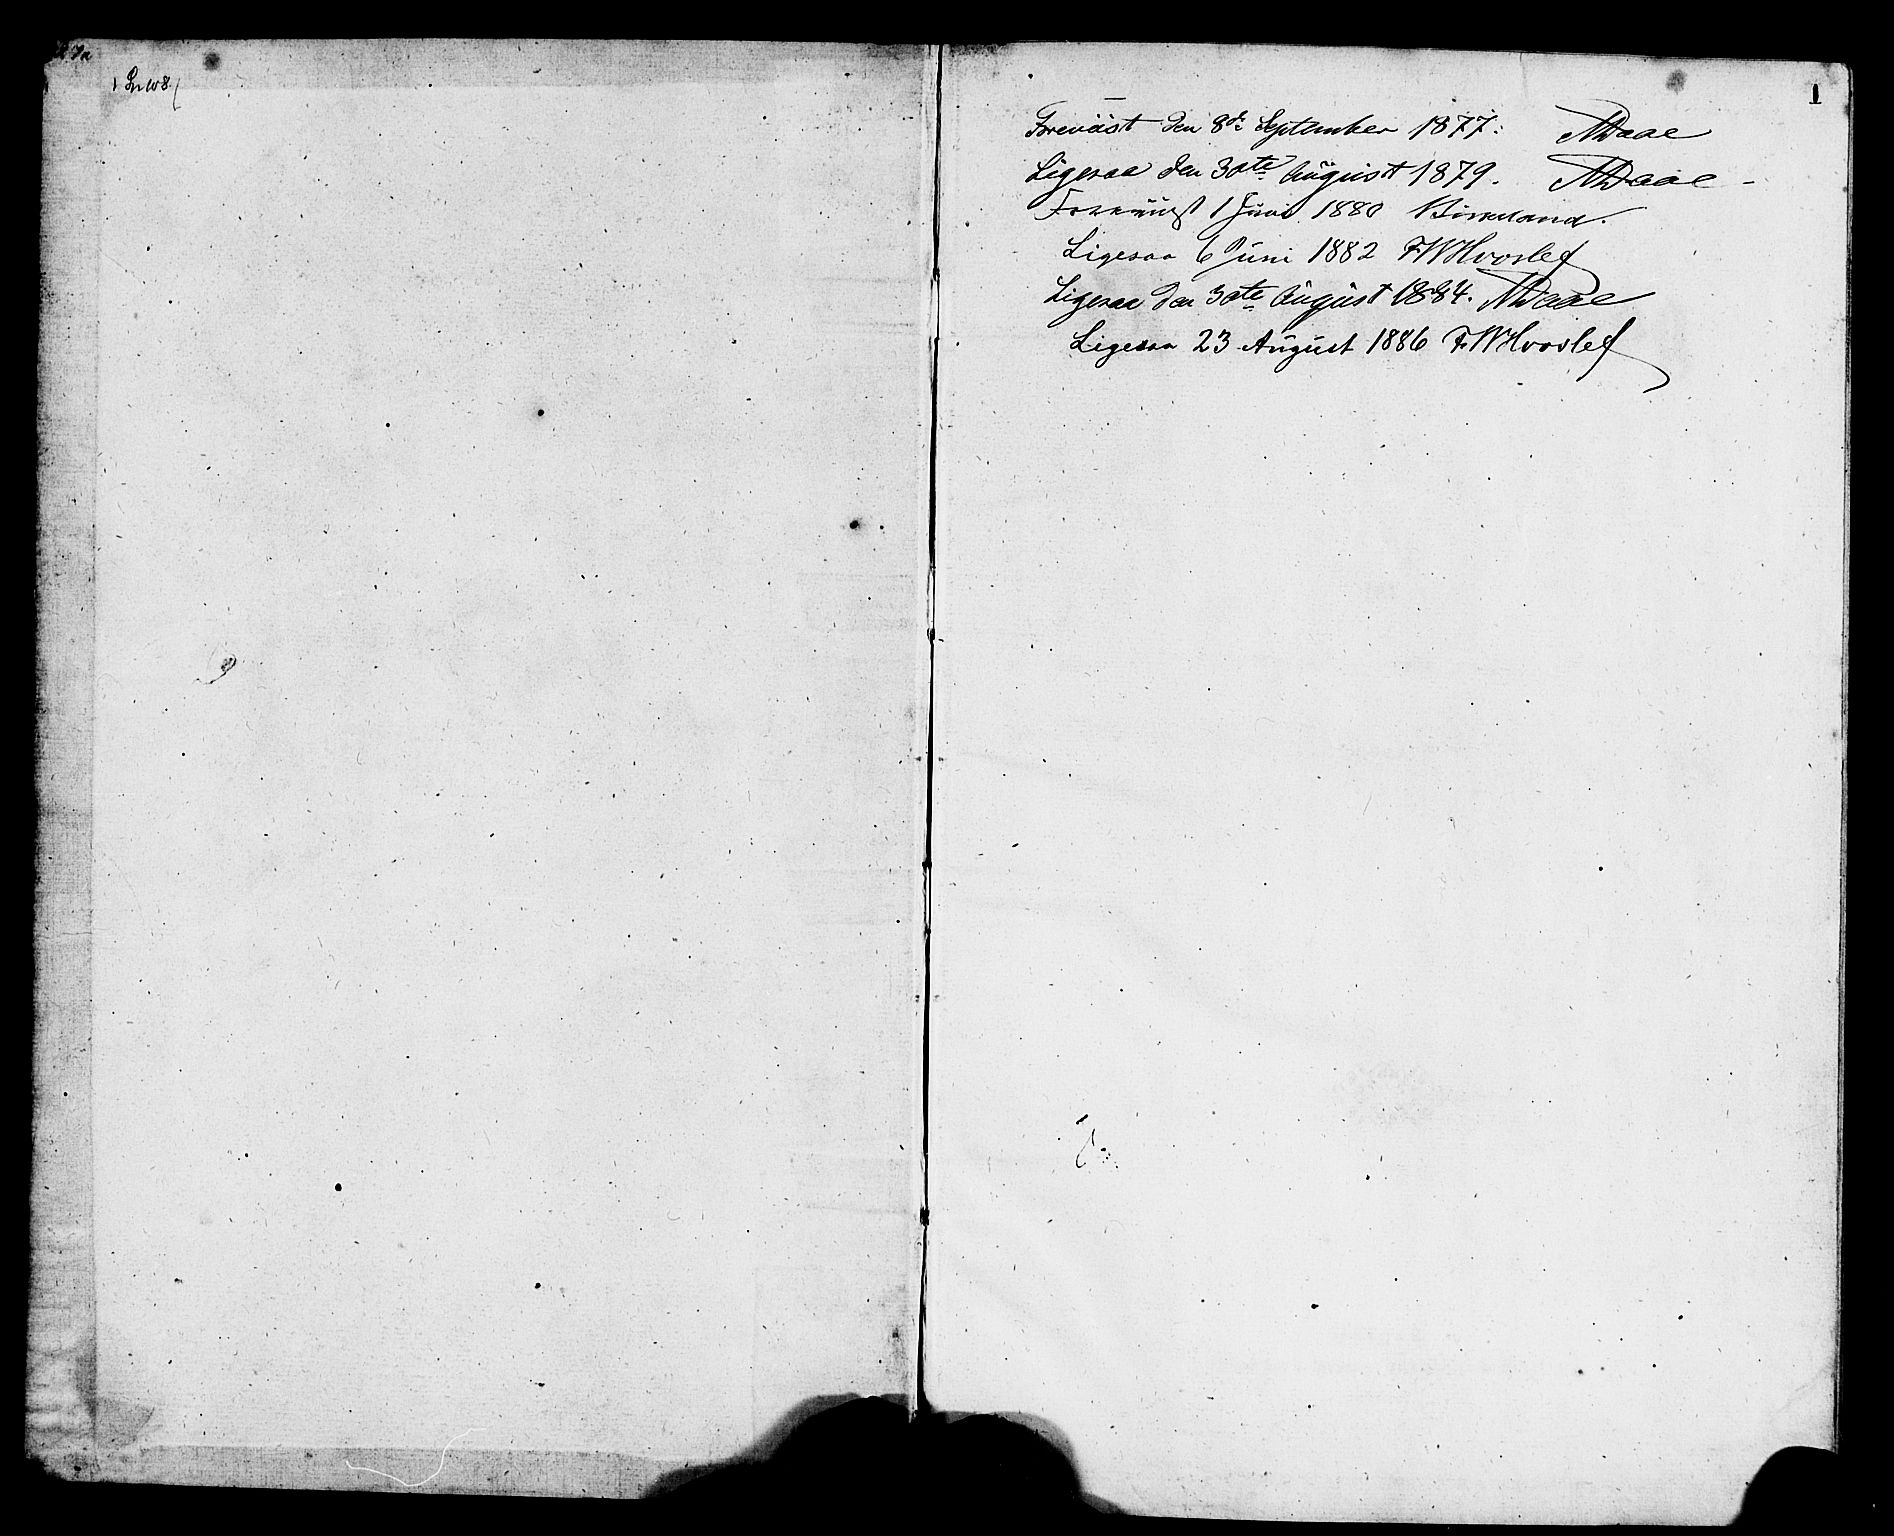 1
Forevist den 8de September 1877: MDaae
Ligesaa den 30te August 1879. MDaae
Forevist 1 Juni 1880 Birkeland.
Ligesaa 6 Juni 1882 F.W.Hvoslef
Ligesaa den 30te August 1884. MDaae
Ligesaa 23 August 1886 F.W.Hvoslef